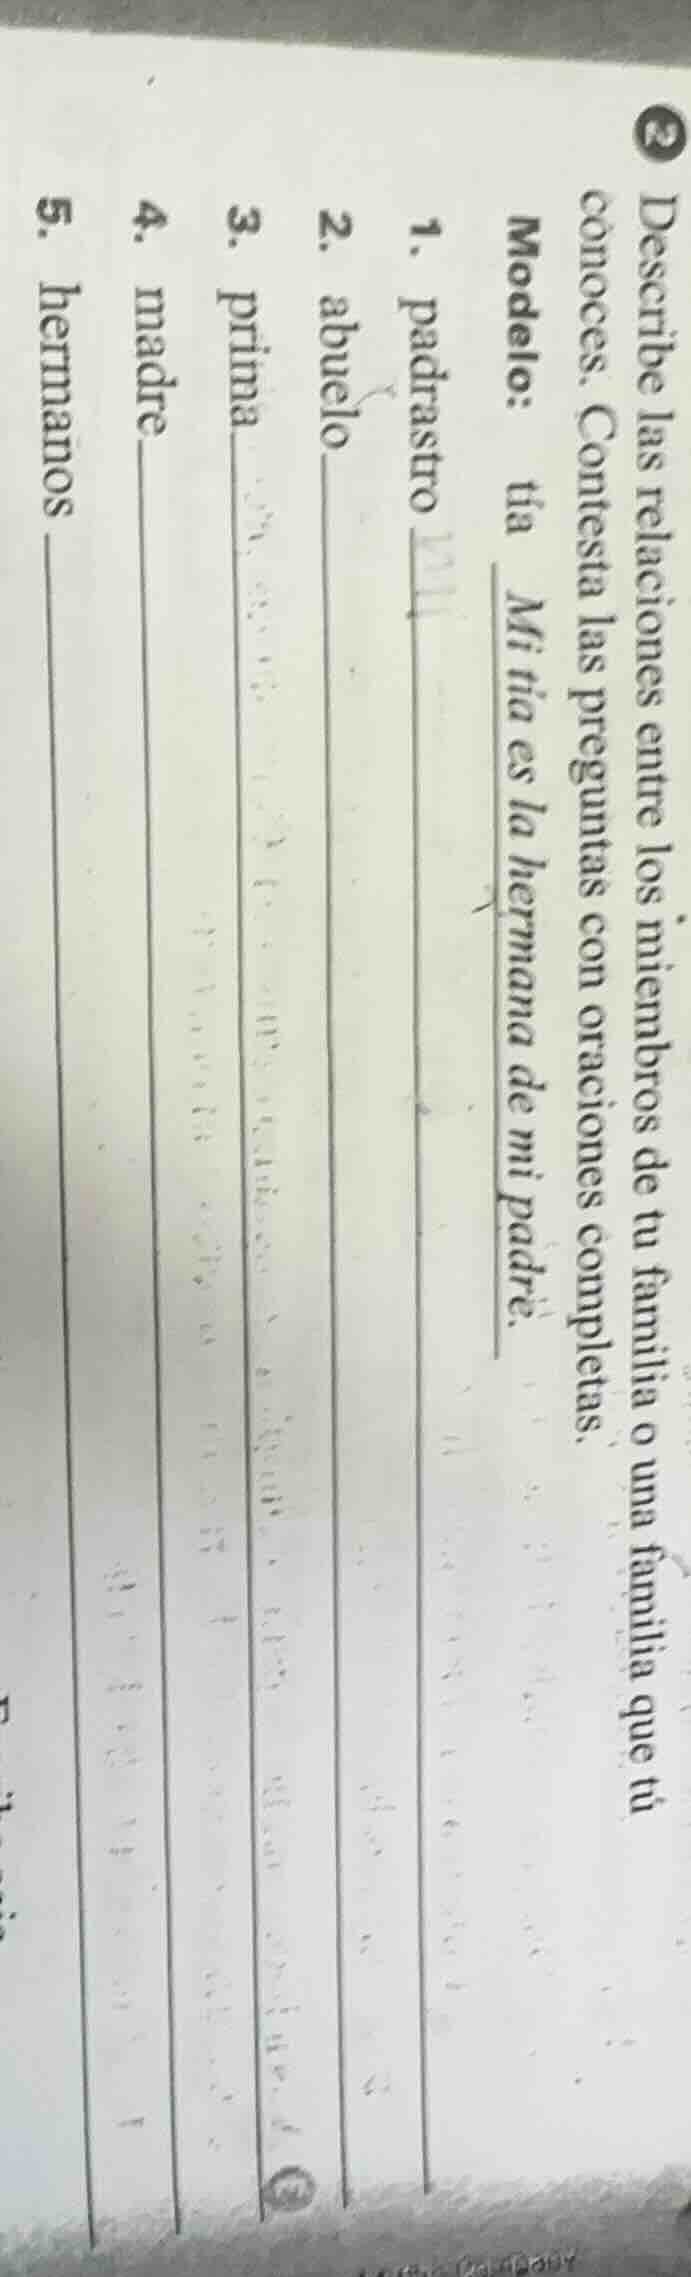 2 Describe las relaciones entre los miembros de tu familia o una familia que tú
conoces. Contesta las preguntas con oraciones completas.
Modelo: tía Mi tía es la hermana de mi padre.
1. padrastro Mi
2. abuelo
3. prima
4. madre
5. hermanos